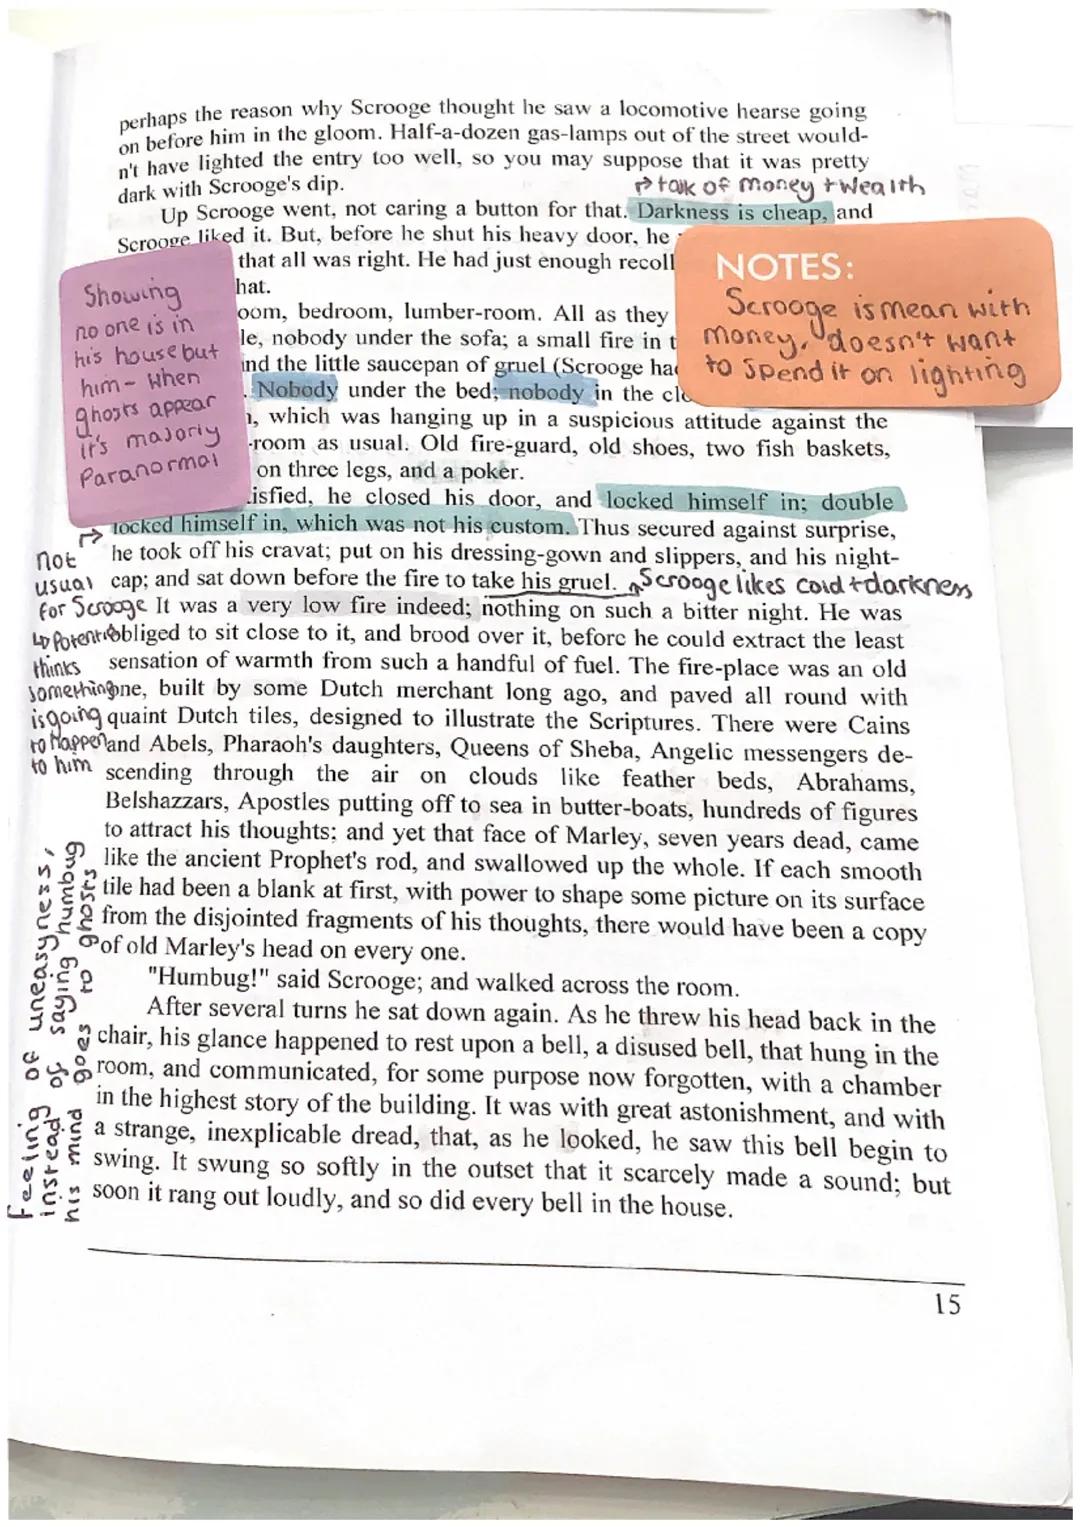 perhaps the reason why Scrooge thought he saw a locomotive hearse going
on before him in the gloom. Half-a-dozen gas-lamps out of the street would-
n't have lighted the entry too well, so you may suppose that it was pretty
dark with Scrooge's dip.
→ talk of money + wealth
Up Scrooge went, not caring a button for that. Darkness is cheap, and
Scrooge liked it. But, before he shut his heavy door, he
that all was right. He had just enough recoll
hat.
oom, bedroom, lumber-room. All as they
le, nobody under the sofa; a small fire in t
nd the little saucepan of gruel (Scrooge had
. Nobody under the bed; nobody in the clo
, which was hanging up in a suspicious attitude against the
-room as usual. Old fire-guard, old shoes, two fish baskets,
on three legs, and a poker.
isfied, he closed his door, and locked himself in; double
locked himself in, which was not his custom. Thus secured against surprise,
he took off his cravat; put on his dressing-gown and slippers, and his night-
cap; and sat down before the fire to take his gruel.
It was a very low fire indeed; nothing on such a bitter night. He was
obliged to sit close to it, and brood over it, before he could extract the least
sensation of warmth from such a handful of fuel. The fire-place was an old
one, built by some Dutch merchant long ago, and paved all round with
quaint Dutch tiles, designed to illustrate the Scriptures. There were Cains
and Abels, Pharaoh's daughters, Queens of Sheba, Angelic messengers de-
scending through the air on clouds like feather beds, Abrahams,
Belshazzars, Apostles putting off to sea in butter-boats, hundreds of figures
to attract his thoughts; and yet that face of Marley, seven years dead, came
like the ancient Prophet's rod, and swallowed up the whole. If each smooth
tile had been a blank at first, with power to shape some picture on its surface
from the disjointed fragments of his thoughts, there would have been a copy
of old Marley's head on every one.
"Humbug!" said Scrooge; and walked across the room.
After several turns he sat down again. As he threw his head back in the
chair, his glance happened to rest upon a bell, a disused bell, that hung in the
room, and communicated, for some purpose now forgotten, with a chamber
in the highest story of the building. It was with great astonishment, and with
a strange, inexplicable dread, that, as he looked, he saw this bell begin to
swing. It swung so softly in the outset that it scarcely made a sound; but
soon it rang out loudly, and so did every bell in the house.
15
NOTES:
Scrooge is mean with
money, doesn't want
to spend it on lighting
Showing
no one is in
his house but
him - when
ghosts appear
it's majoriy
Paranormal
Scrooge likes cold + darkness
not
usual
for Scrooge
thinks
something
is going
to happen
to him
feeing of uneasyness,
instead of saying humbug
his mind goes to ghosts